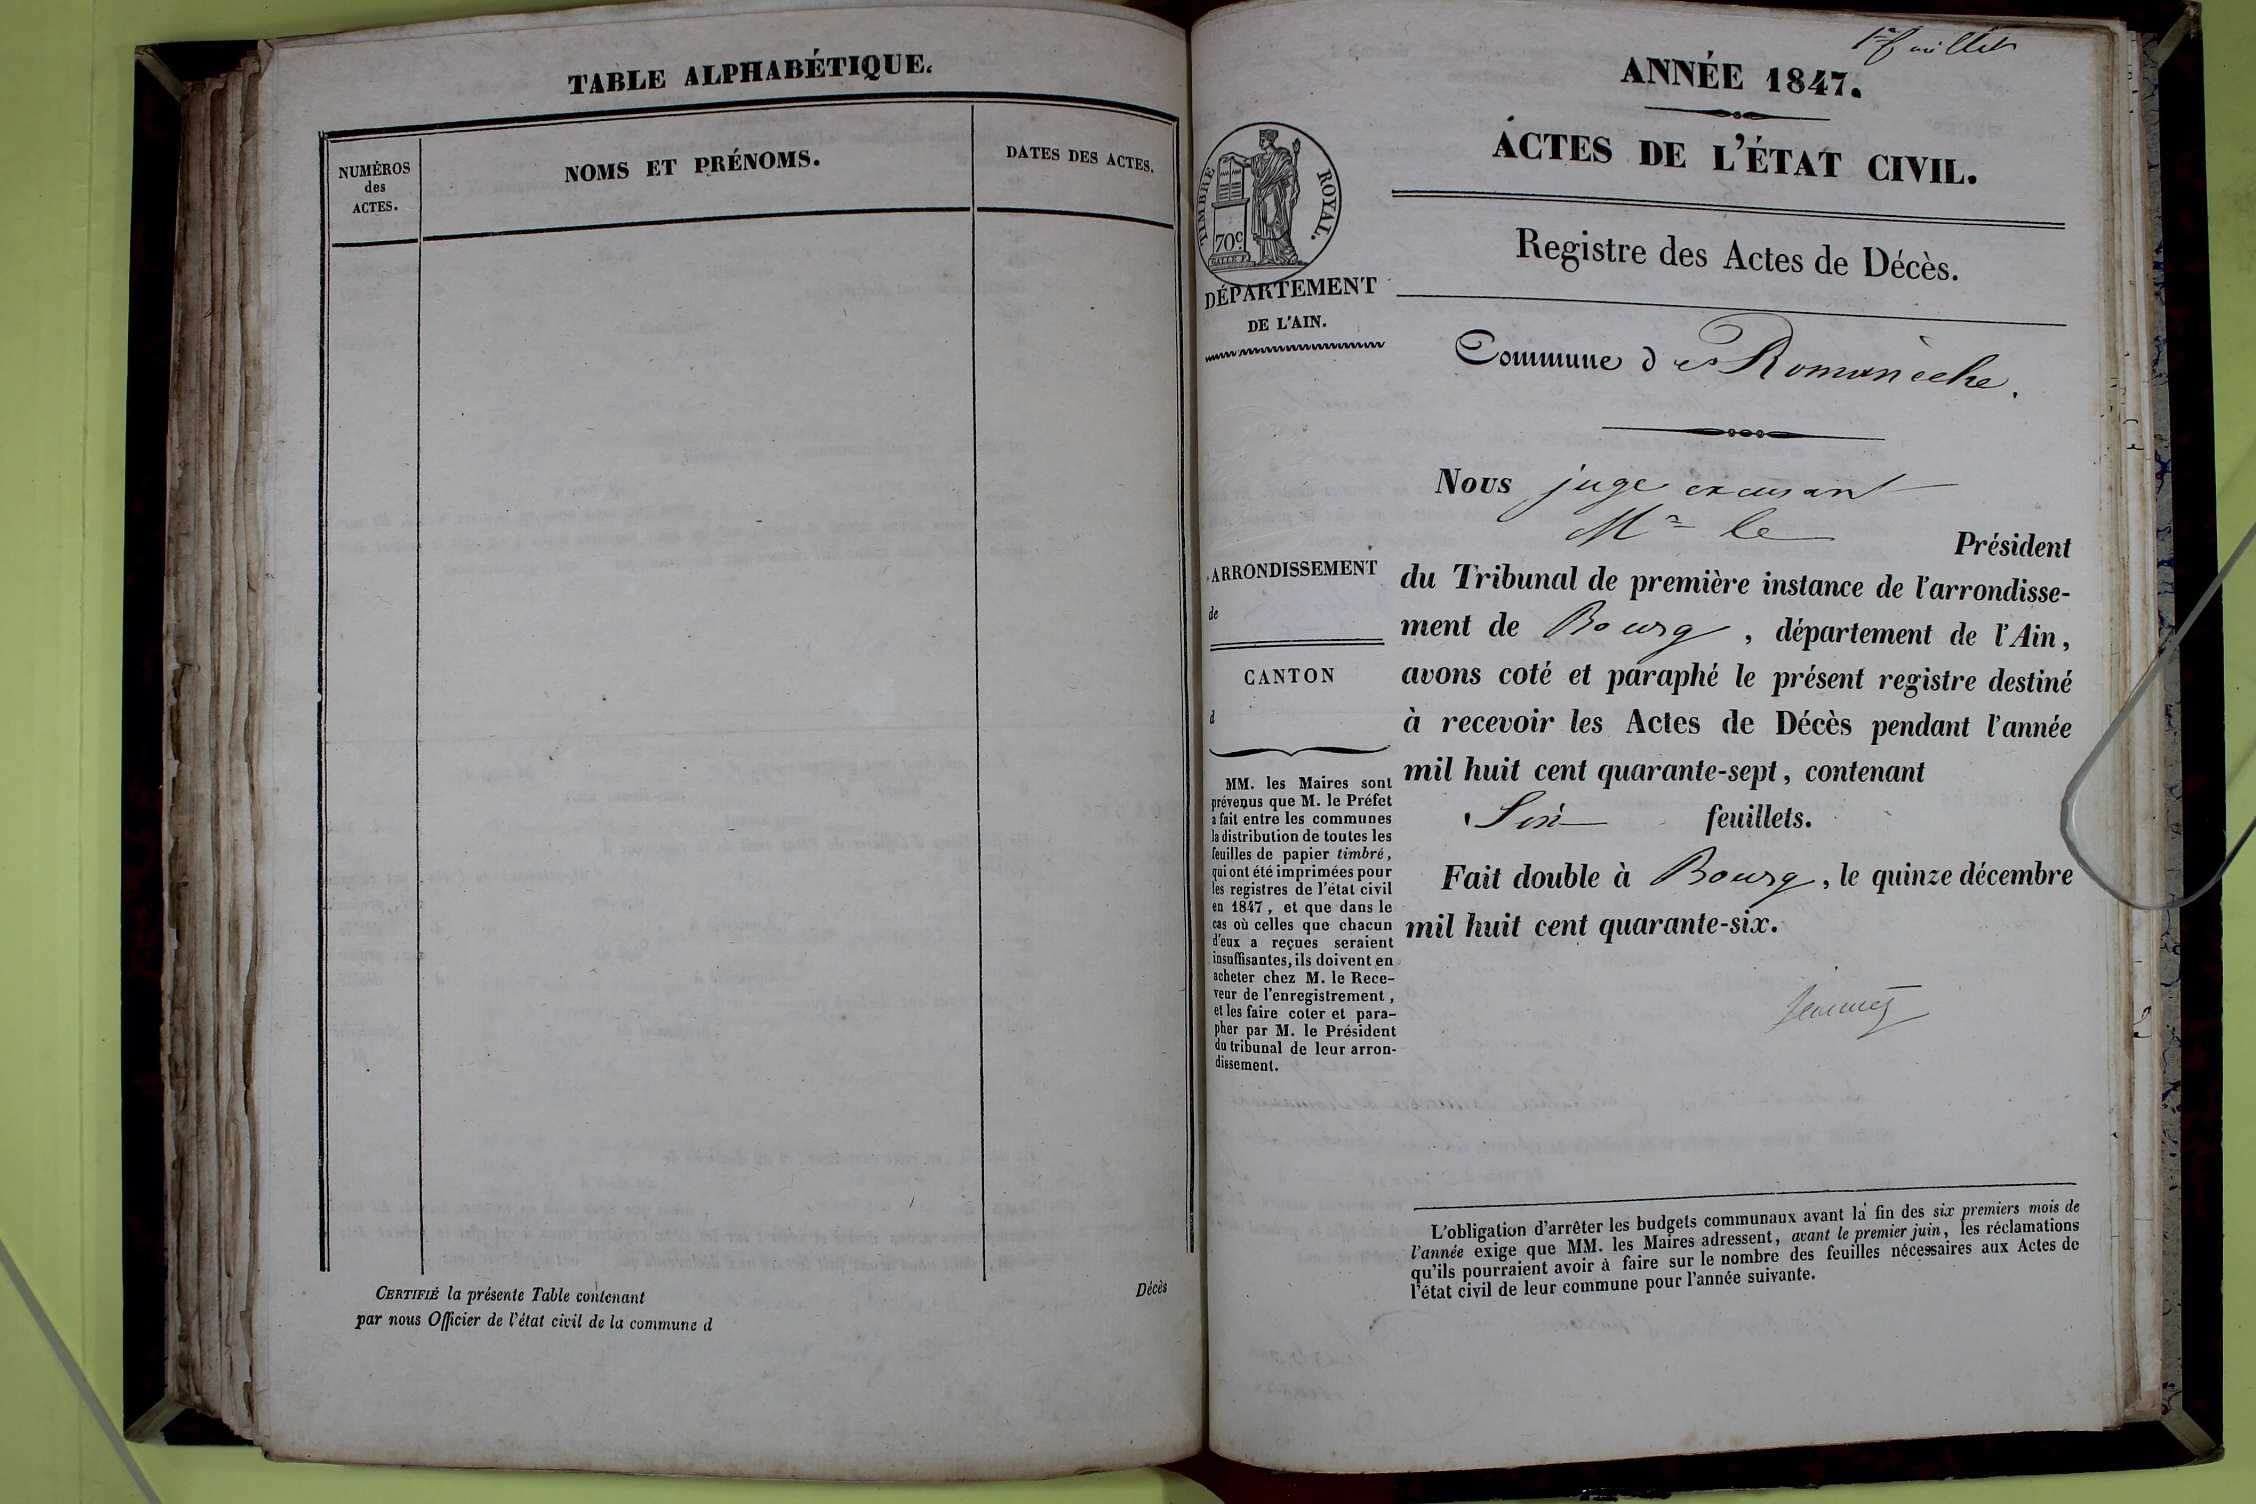 TABLE ALPHABÉTIQUE.
NUMÉROS
des
ACTES.
NOMS ET PRÉNOMS.
DATES DES ACTES.
CERTIFIÉ la présente Table contenant
Décès
par nous Officier de l'état civil de la commune d
1er feuillet
ANNÉE 1847.
ACTES DE L'ÉTAT CIVIL.
Registre des Actes de Décès.
TIMBRE ROYAL.
70c.
GALLE F.
DÉPARTEMENT
DE L'AIN.
Commune de Romanèche.
ARRONDISSEMENT
de
CANTON
d
MM. les Maires sont
prévenus que M. le Préfet
a fait entre les communes
la distribution de toutes les
feuilles de papier timbré,
qui ont été imprimées pour
les registres de l'état civil
en 1847, et que dans le
cas où celles que chacun
d'eux a reçues seraient
insuffisantes, ils doivent en
acheter chez M. le Rece-
veur de l'enregistrement,
et les faire coter et para-
pher par M. le Président
du tribunal de leur arron-
dissement.
Nous juge excusant
Mr le
Président
du Tribunal de première instance de l'arrondisse-
ment de Bourg, département de l'Ain,
avons coté et paraphé le présent registre destiné
à recevoir les Actes de Décès pendant l'année
mil huit cent quarante-sept, contenant
Six feuillets.
Fait double à Bourg, le quinze décembre
mil huit cent quarante-six.
L'obligation d'arrêter les budgets communaux avant la fin des six premiers mois de
l'année exige que MM. les Maires adressent, avant le premier juin, les réclamations
qu'ils pourraient avoir à faire sur le nombre des feuilles nécessaires aux Actes de
l'état civil de leur commune pour l'année suivante.